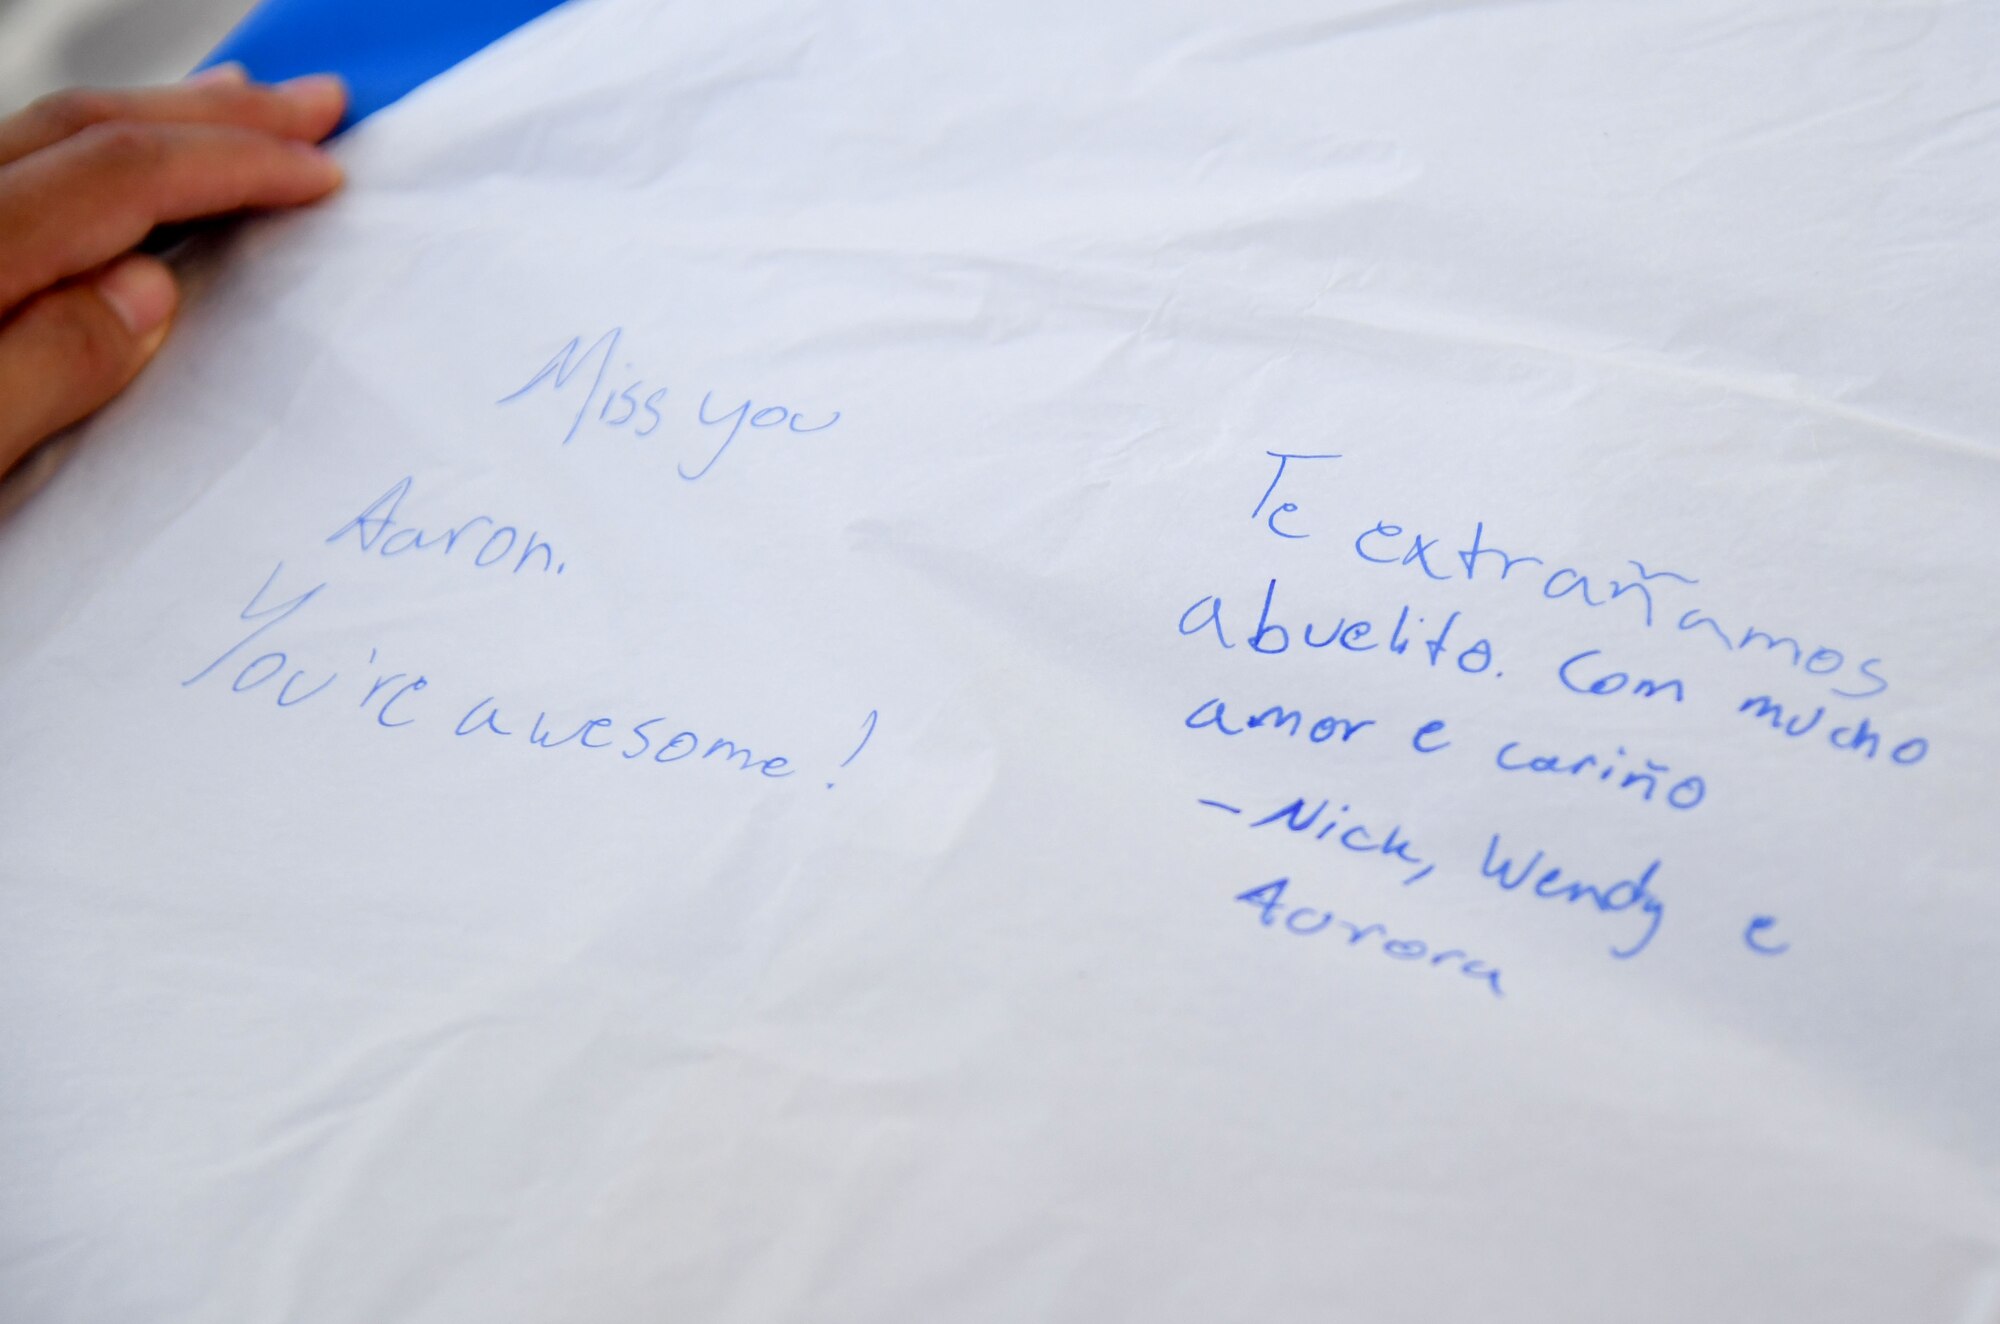 Miss you
Aaron.
You're awesome!
Te extrañamos
abuelito. Com mucho
amor e cariño
- Nick, Wendy e
Aurora